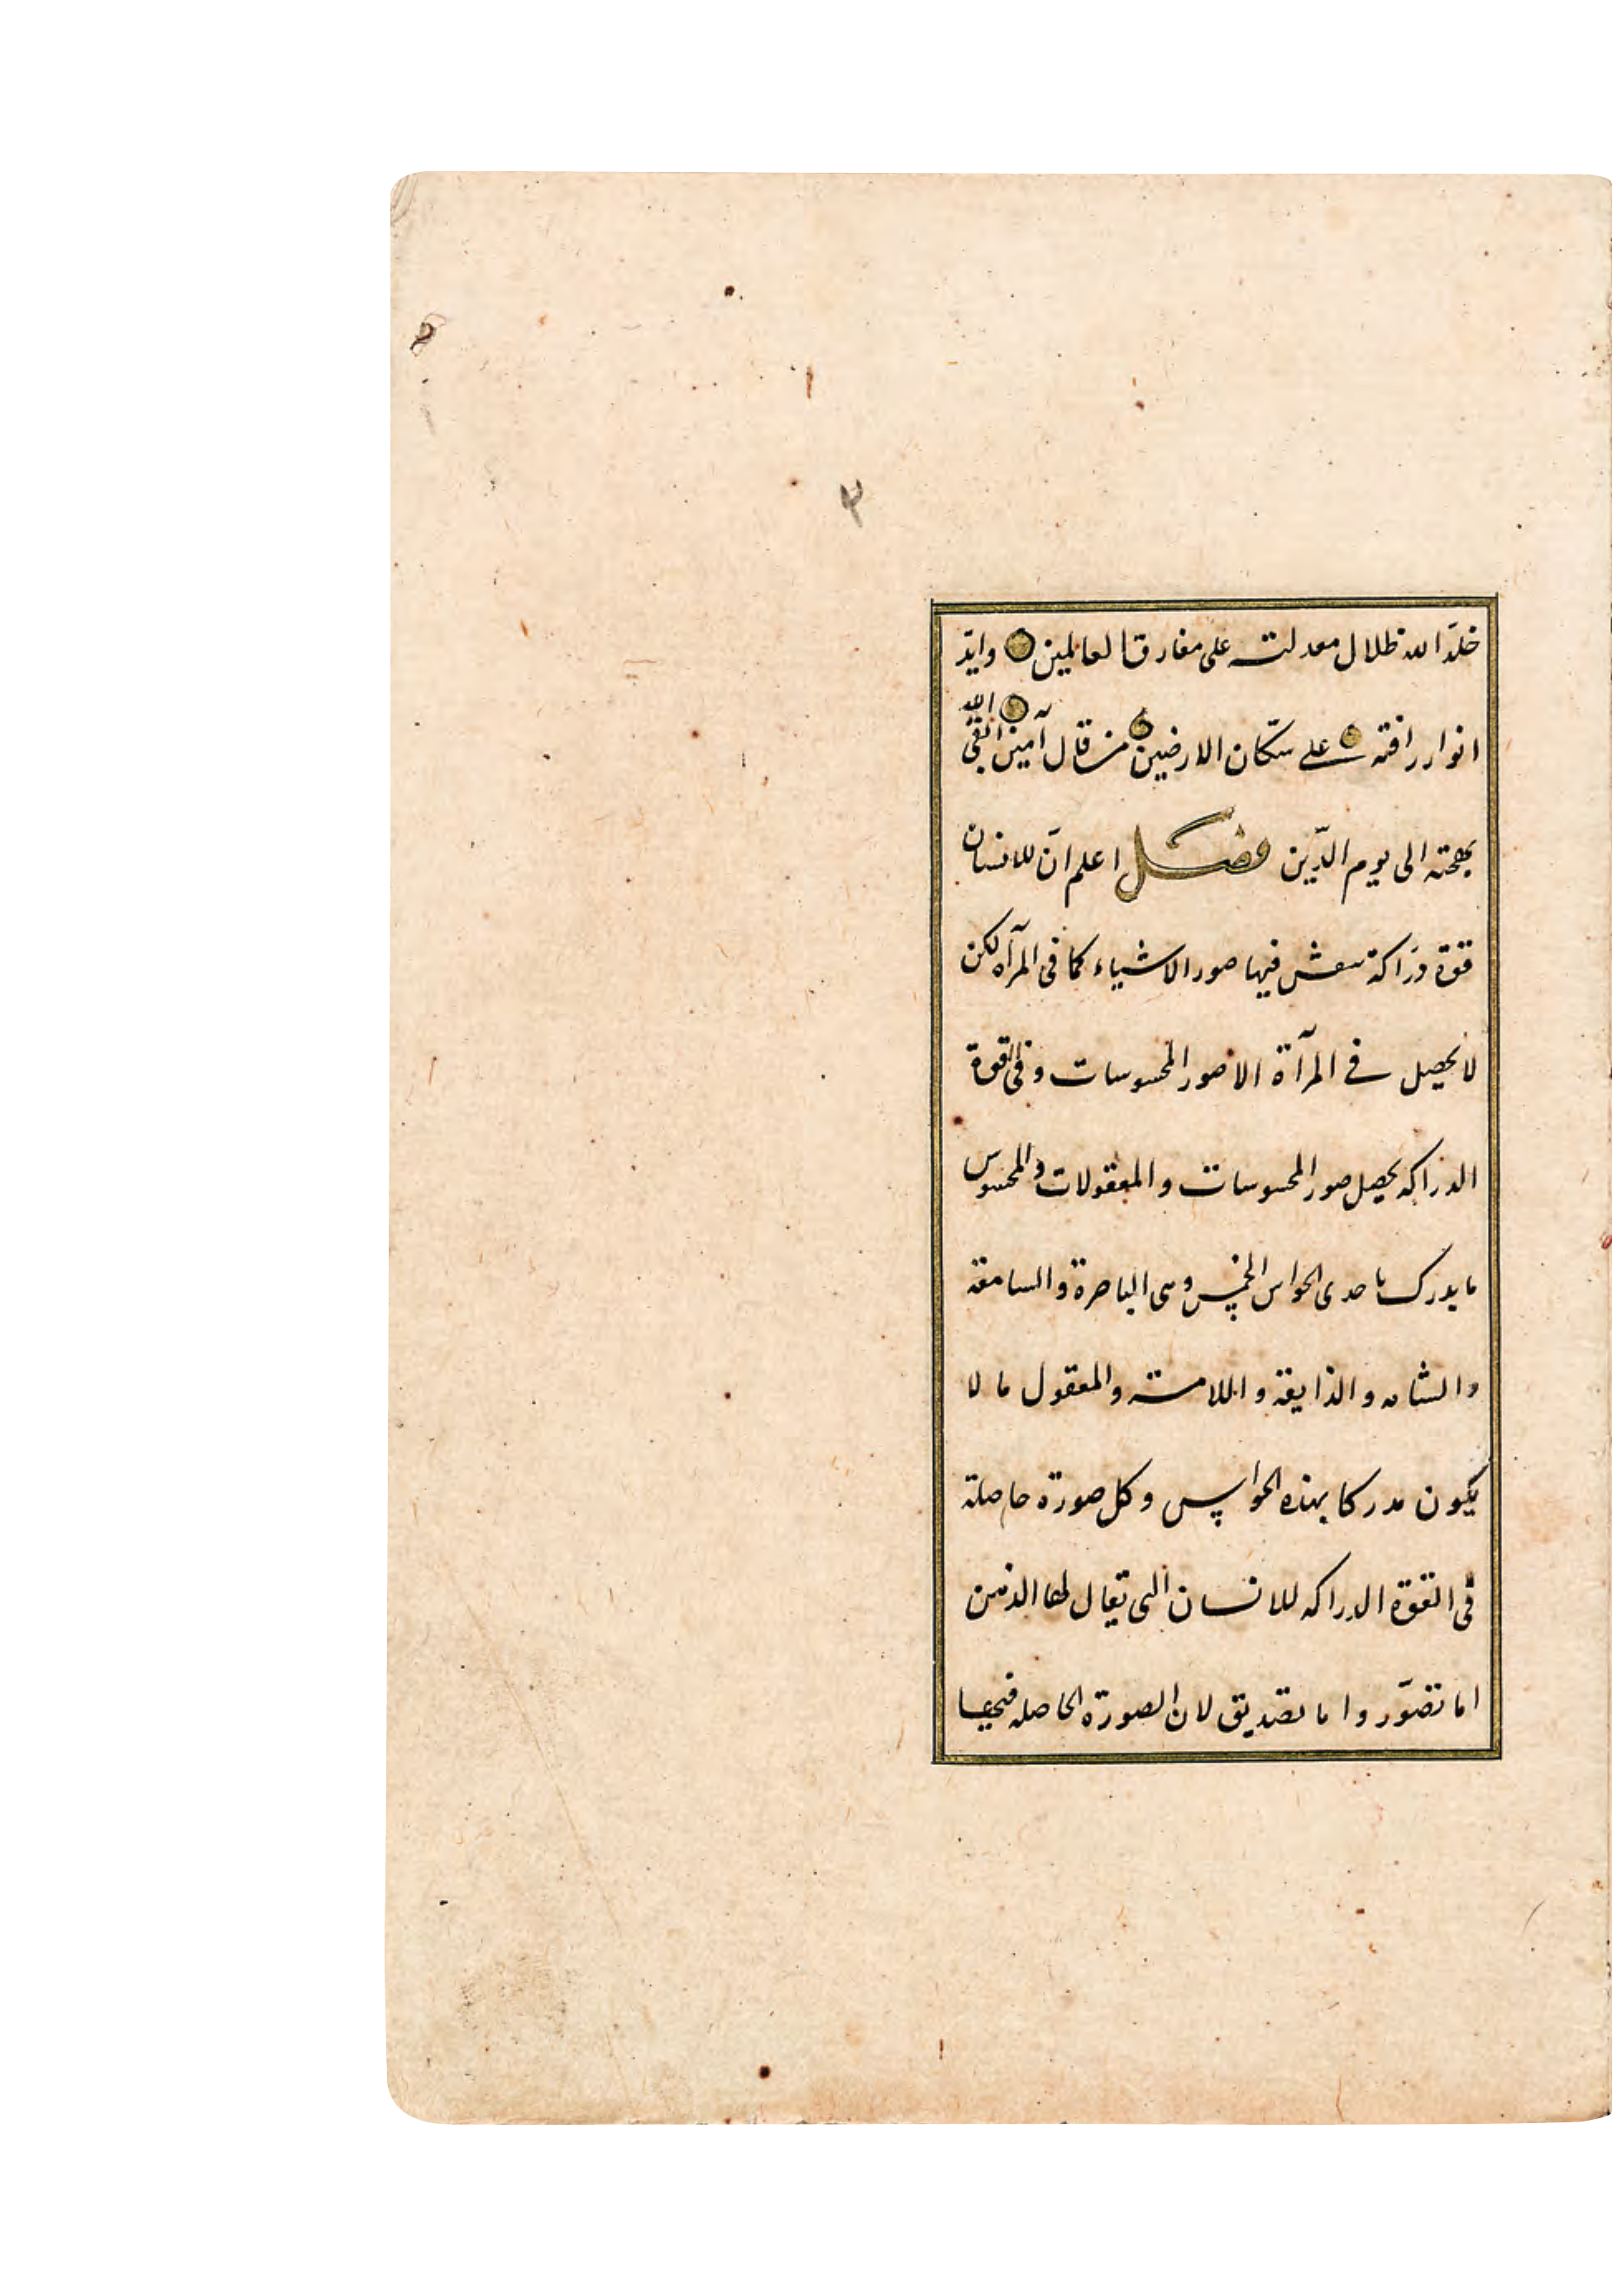 ٣
خلّد الله ظلال معدلته على مفارق العالمين وايّد
انوار رافته على سكّان الارضين من قال آمين ابقى الله
بهجته الى يوم الدّين فصل اعلم انّ للانسان
قوة درّاكة تنتقش فيها صور الاشياء كما فى المرآة لكن
لا يحصل في المرآة الا صور المحسوسات وفى القوة
الدراكه يحصل صور المحسوسات والمعقولات والمحسوس
ما يدرك باحدى الحواس الخمس وهى الباصرة والسامعة
والشامه والذايقة واللامسته والمعقول ما لا
يكون مدركا بهذه الحواس وكل صورة حاصلة
فى القوة الدراكه للانسان التى يقال لها الذهن
اما تصوّر واما تصديق لان الصورة الحاصله فيها